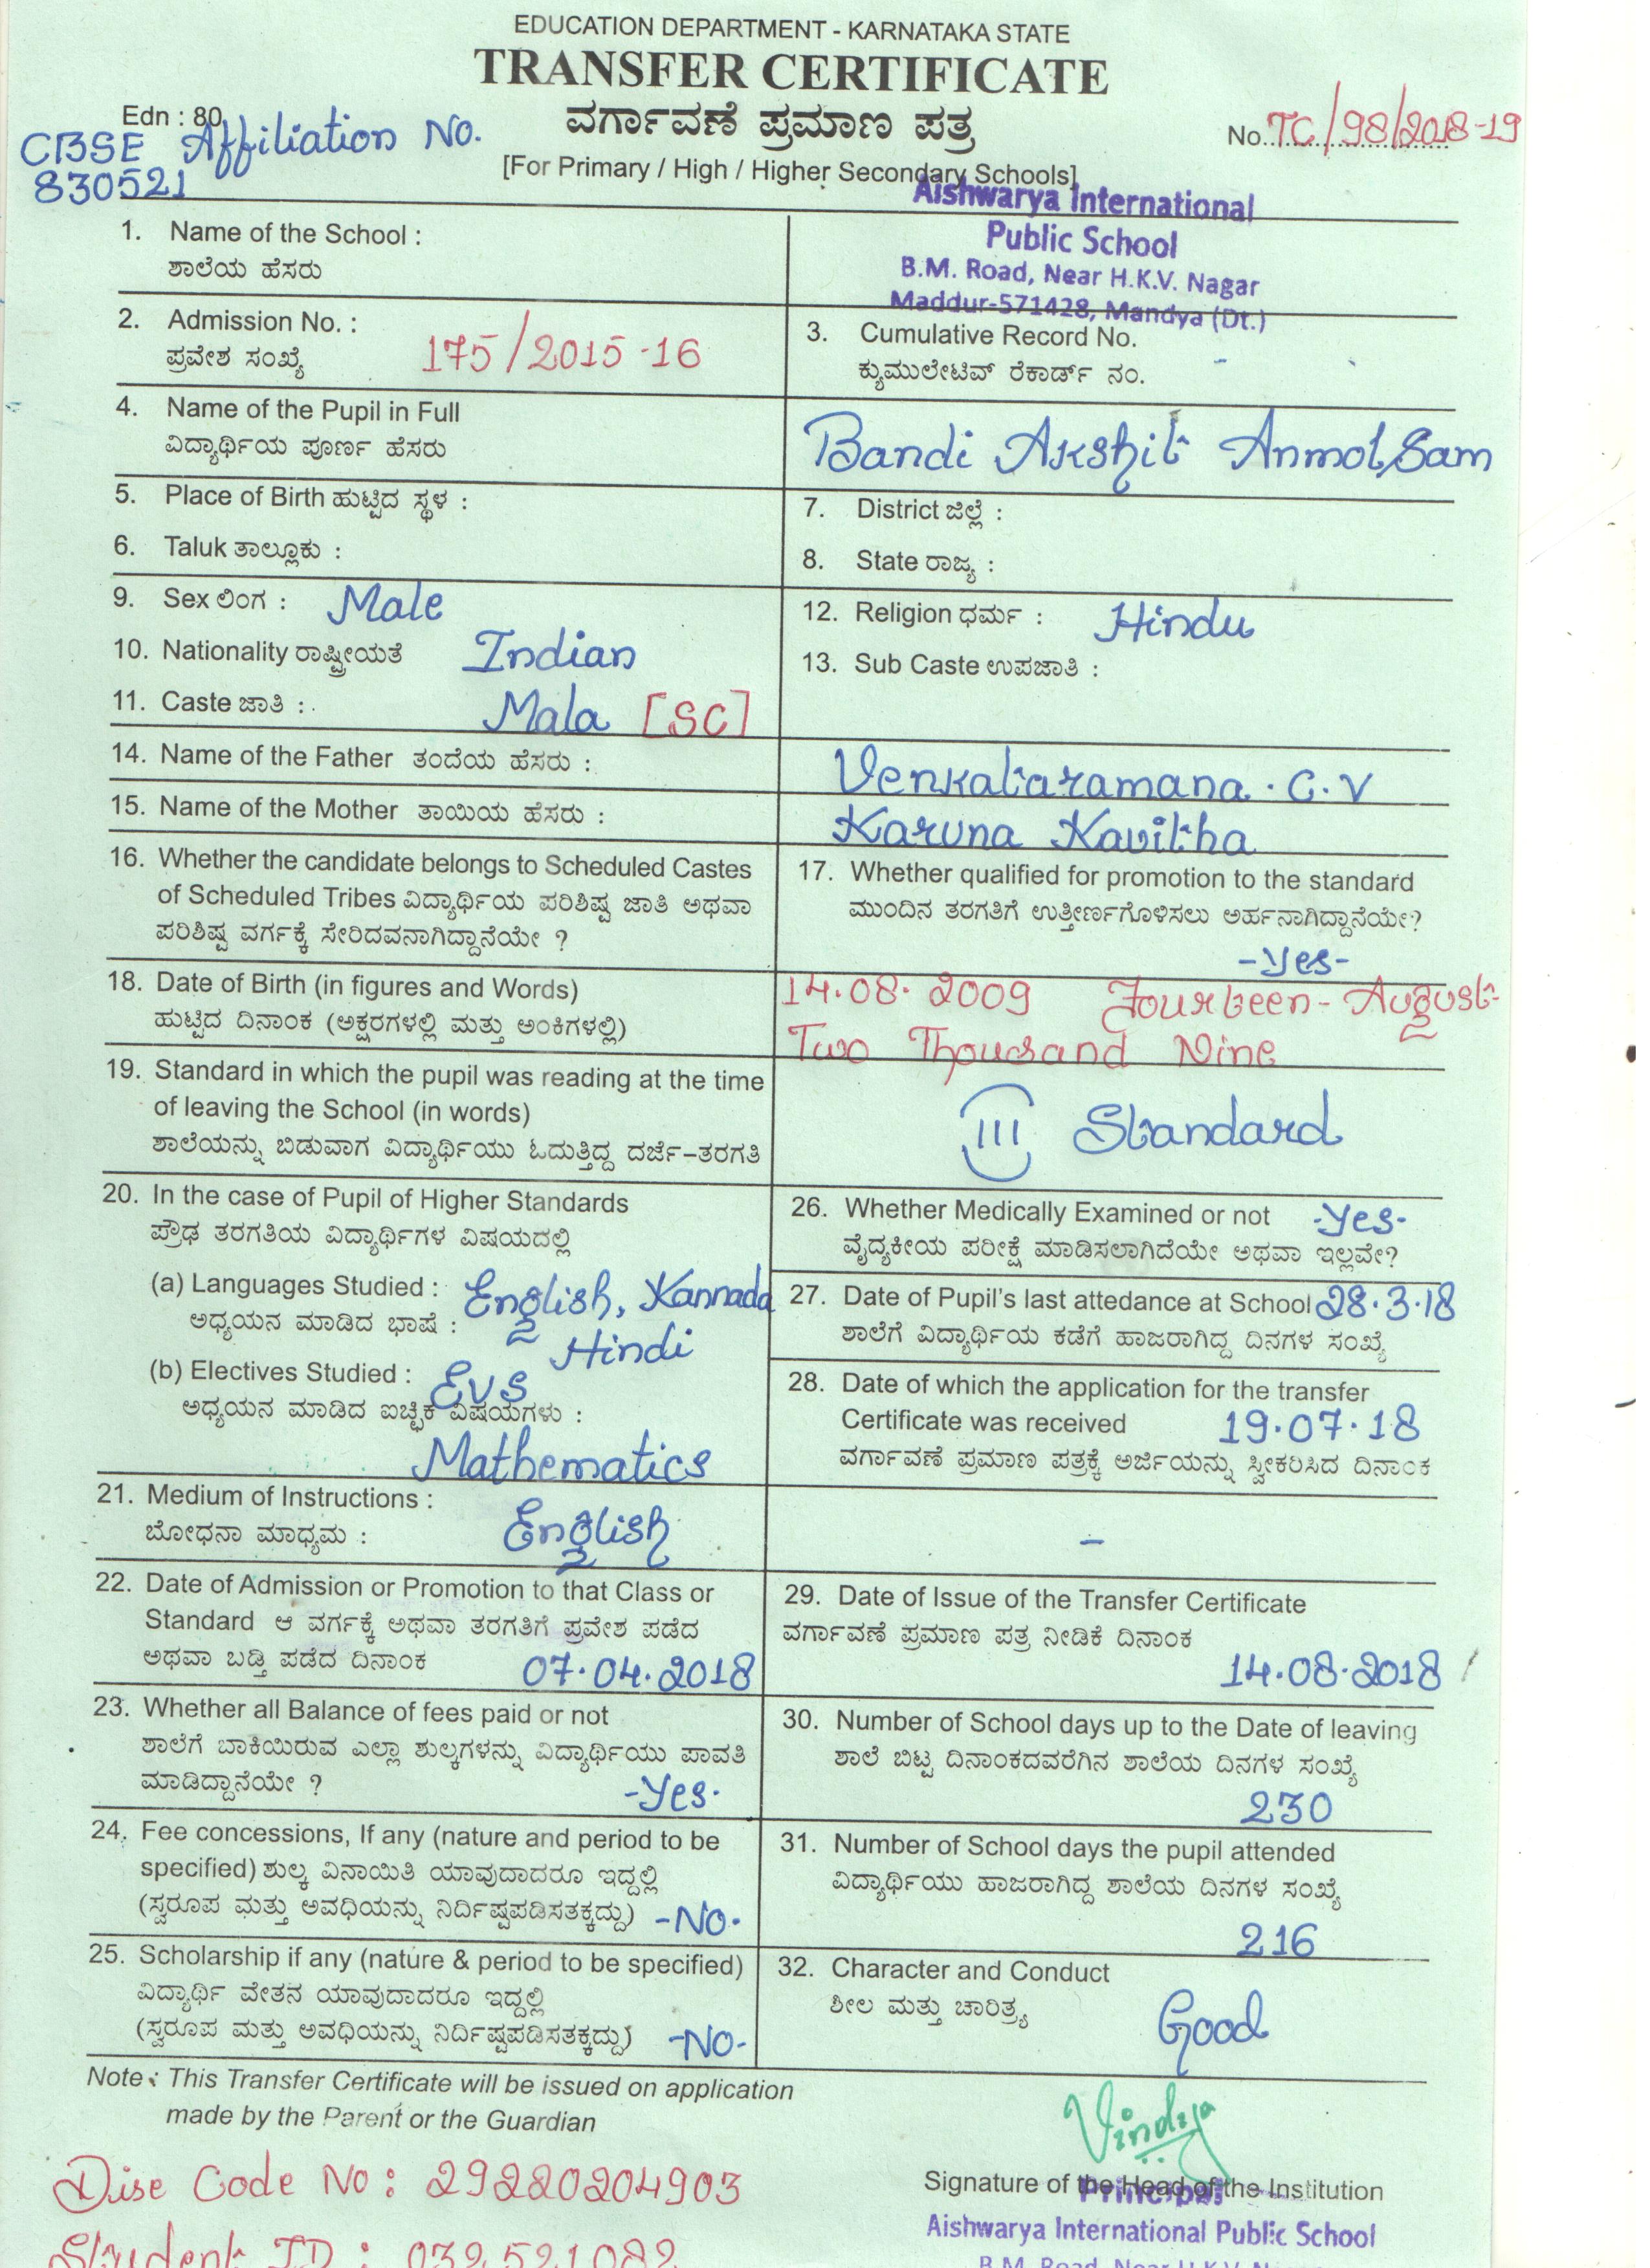 EDUCATION DEPARTMENT - KARNATAKA STATE
TRANSFER CERTIFICATE
Edn : 80
ವರ್ಗಾವಣೆ ಪ್ರಮಾಣ ಪತ್ರ
No. TC/98/2018-19
CBSE Affiliation No.
830521
[For Primary / High / Higher Secondary Schools]
Aishwarya International
Public School
B.M. Road, Near H.K.V. Nagar
Maddur-571428, Mandya (Dt.)
1. Name of the School :
ಶಾಲೆಯ ಹೆಸರು
2. Admission No. :
ಪ್ರವೇಶ ಸಂಖ್ಯೆ 175/2015-16
3. Cumulative Record No.
ಕ್ಯುಮುಲೇಟಿವ್ ರೆಕಾರ್ಡ್ ನಂ. -
4. Name of the Pupil in Full
ವಿದ್ಯಾರ್ಥಿಯ ಪೂರ್ಣ ಹೆಸರು
Bandi Akshit Anmol Sam
5. Place of Birth ಹುಟ್ಟಿದ ಸ್ಥಳ :
6. Taluk ತಾಲ್ಲೂಕು :
7. District ಜಿಲ್ಲೆ :
8. State ರಾಜ್ಯ :
9. Sex ಲಿಂಗ : Male
10. Nationality ರಾಷ್ಟ್ರೀಯತೆ Indian
11. Caste ಜಾತಿ : Mala [SC]
12. Religion ಧರ್ಮ : Hindu
13. Sub Caste ಉಪಜಾತಿ :
14. Name of the Father ತಂದೆಯ ಹೆಸರು : Venkataramana . C.V
15. Name of the Mother ತಾಯಿಯ ಹೆಸರು : Karuna Kavitha
16. Whether the candidate belongs to Scheduled Castes
of Scheduled Tribes ವಿದ್ಯಾರ್ಥಿಯ ಪರಿಶಿಷ್ಟ ಜಾತಿ ಅಥವಾ
ಪರಿಶಿಷ್ಟ ವರ್ಗಕ್ಕೆ ಸೇರಿದವನಾಗಿದ್ದಾನೆಯೇ ?
17. Whether qualified for promotion to the standard
ಮುಂದಿನ ತರಗತಿಗೆ ಉತ್ತೀರ್ಣಗೊಳಿಸಲು ಅರ್ಹನಾಗಿದ್ದಾನೆಯೇ?
-Yes-
18. Date of Birth (in figures and Words)
ಹುಟ್ಟಿದ ದಿನಾಂಕ (ಅಕ್ಷರಗಳಲ್ಲಿ ಮತ್ತು ಅಂಕಿಗಳಲ್ಲಿ)
14.08.2009 Fourteen - August
Two Thousand Nine
19. Standard in which the pupil was reading at the time
of leaving the School (in words)
ಶಾಲೆಯನ್ನು ಬಿಡುವಾಗ ವಿದ್ಯಾರ್ಥಿಯು ಓದುತ್ತಿದ್ದ ದರ್ಜೆ-ತರಗತಿ
III Standard
20. In the case of Pupil of Higher Standards
ಪ್ರೌಢ ತರಗತಿಯ ವಿದ್ಯಾರ್ಥಿಗಳ ವಿಷಯದಲ್ಲಿ
(a) Languages Studied : English, Kannada
ಅಧ್ಯಯನ ಮಾಡಿದ ಭಾಷೆ : Hindi
(b) Electives Studied : EVS
ಅಧ್ಯಯನ ಮಾಡಿದ ಐಚ್ಛಿಕ ವಿಷಯಗಳು :
Mathematics
26. Whether Medically Examined or not -Yes-
ವೈದ್ಯಕೀಯ ಪರೀಕ್ಷೆ ಮಾಡಿಸಲಾಗಿದೆಯೇ ಅಥವಾ ಇಲ್ಲವೇ?
27. Date of Pupil's last attedance at School 28.3.18
ಶಾಲೆಗೆ ವಿದ್ಯಾರ್ಥಿಯ ಕಡೆಗೆ ಹಾಜರಾಗಿದ್ದ ದಿನಗಳ ಸಂಖ್ಯೆ
28. Date of which the application for the transfer
Certificate was received 19.07.18
ವರ್ಗಾವಣೆ ಪ್ರಮಾಣ ಪತ್ರಕ್ಕೆ ಅರ್ಜಿಯನ್ನು ಸ್ವೀಕರಿಸಿದ ದಿನಾಂಕ
21. Medium of Instructions :
ಬೋಧನಾ ಮಾಧ್ಯಮ : English
-
22. Date of Admission or Promotion to that Class or
Standard ಆ ವರ್ಗಕ್ಕೆ ಅಥವಾ ತರಗತಿಗೆ ಪ್ರವೇಶ ಪಡೆದ
ಅಥವಾ ಬಡ್ತಿ ಪಡೆದ ದಿನಾಂಕ 07.04.2018
29. Date of Issue of the Transfer Certificate
ವರ್ಗಾವಣೆ ಪ್ರಮಾಣ ಪತ್ರ ನೀಡಿಕೆ ದಿನಾಂಕ
14.08.2018
23. Whether all Balance of fees paid or not
ಶಾಲೆಗೆ ಬಾಕಿಯಿರುವ ಎಲ್ಲಾ ಶುಲ್ಕಗಳನ್ನು ವಿದ್ಯಾರ್ಥಿಯು ಪಾವತಿ
ಮಾಡಿದ್ದಾನೆಯೇ ? -Yes-
30. Number of School days up to the Date of leaving
ಶಾಲೆ ಬಿಟ್ಟ ದಿನಾಂಕದವರೆಗಿನ ಶಾಲೆಯ ದಿನಗಳ ಸಂಖ್ಯೆ
230
24. Fee concessions, If any (nature and period to be
specified) ಶುಲ್ಕ ವಿನಾಯಿತಿ ಯಾವುದಾದರೂ ಇದ್ದಲ್ಲಿ
(ಸ್ವರೂಪ ಮತ್ತು ಅವಧಿಯನ್ನು ನಿರ್ದಿಷ್ಟಪಡಿಸತಕ್ಕದ್ದು) -NO-
31. Number of School days the pupil attended
ವಿದ್ಯಾರ್ಥಿಯು ಹಾಜರಾಗಿದ್ದ ಶಾಲೆಯ ದಿನಗಳ ಸಂಖ್ಯೆ
216
25. Scholarship if any (nature & period to be specified)
ವಿದ್ಯಾರ್ಥಿ ವೇತನ ಯಾವುದಾದರೂ ಇದ್ದಲ್ಲಿ
(ಸ್ವರೂಪ ಮತ್ತು ಅವಧಿಯನ್ನು ನಿರ್ದಿಷ್ಟಪಡಿಸತಕ್ಕದ್ದು) -NO-
32. Character and Conduct
ಶೀಲ ಮತ್ತು ಚಾರಿತ್ರ್ಯ
Good
Note : This Transfer Certificate will be issued on application
made by the Parent or the Guardian
Vindya
Signature of the Head of the Institution
Principal
Aishwarya International Public School
Dise Code No : 29220204903
Student ID : 032521082
B.M. Road, Near H.K.V. Nagar